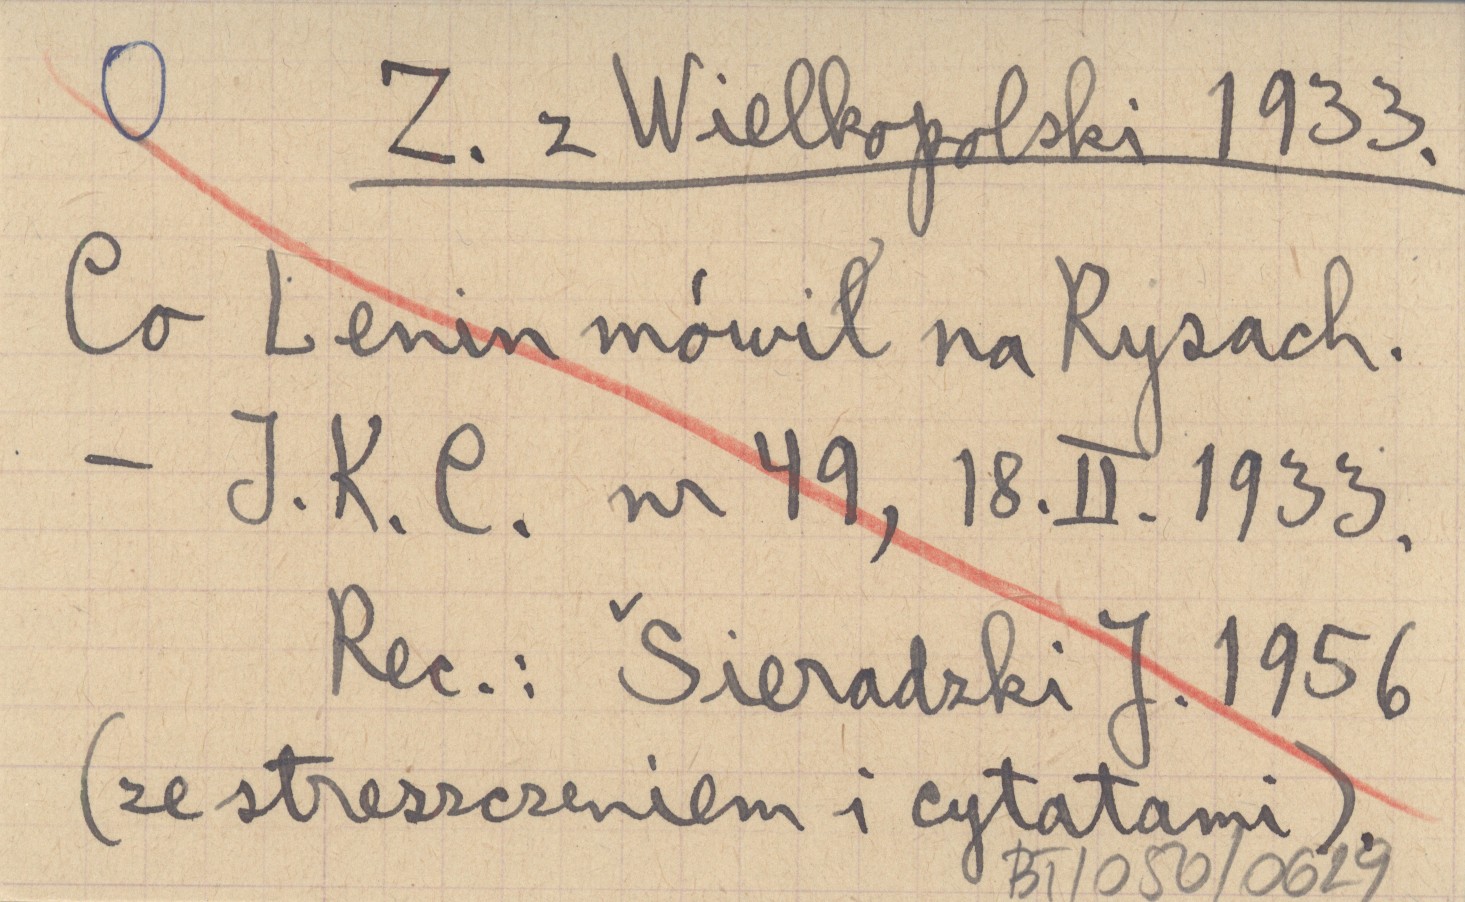 Z. z Wielkopolski 1933.
Co Lenin mówił na Rysach.
– J.K.C. nr 49, 18.II.1933.
Rec.: Šieradzki J. 1956
(ze streszczeniem i cytatami).
BT/050/0629